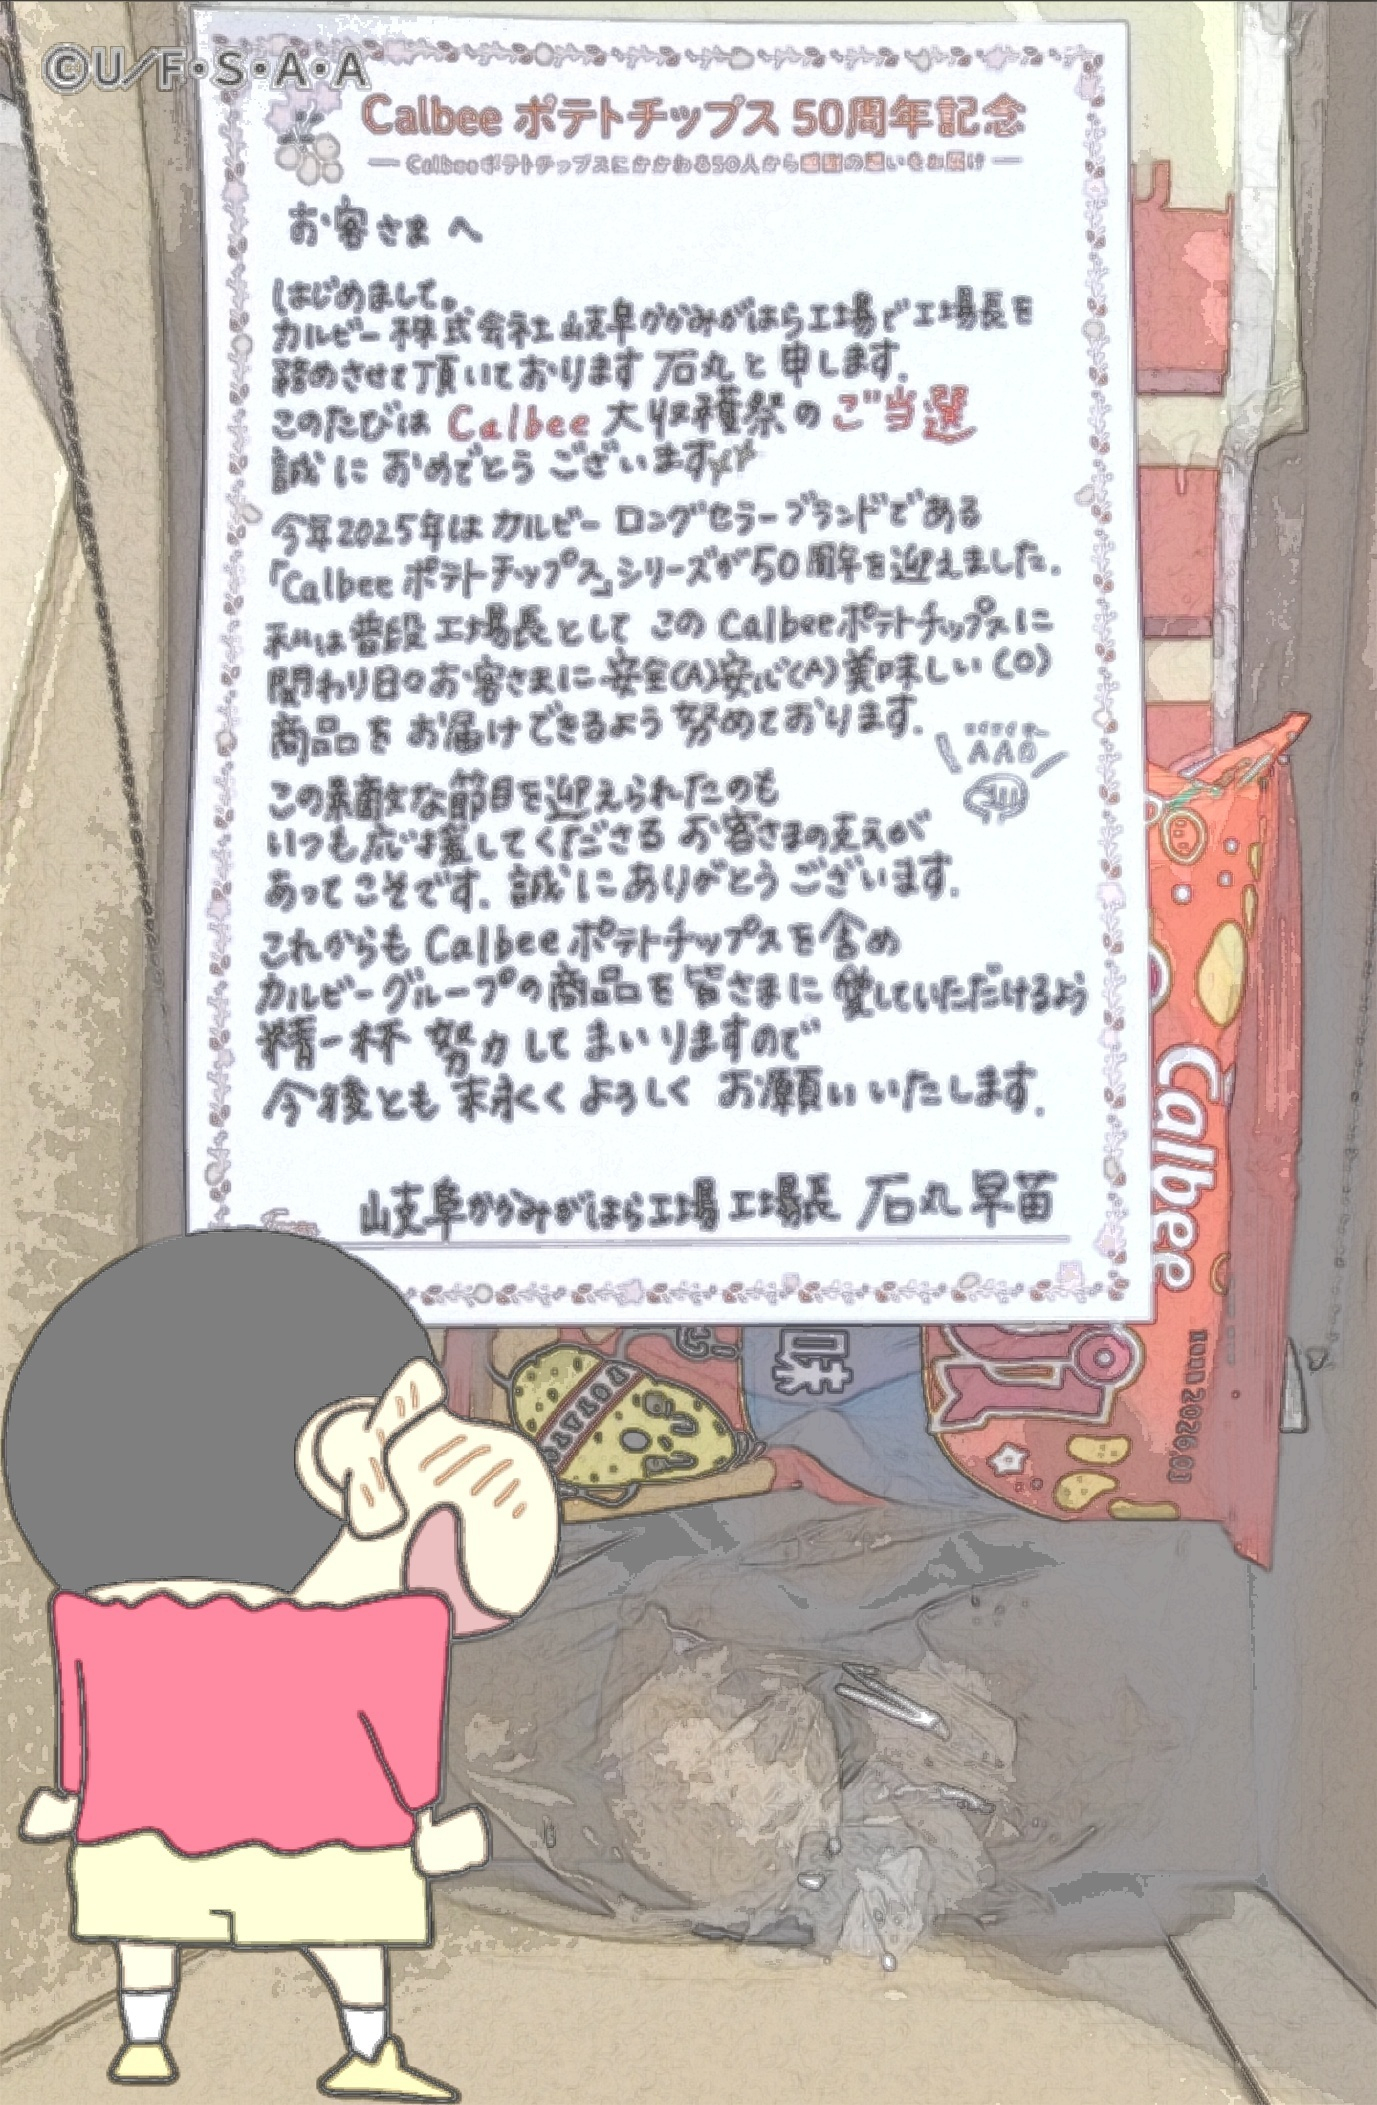 ©U/F・S・A・A
Calbee ポテトチップス 50周年記念
Calbeeポテトチップスにかかわる50人から感謝の想いをお届け
お客さま へ
はじめまして。
カルビー株式会社 岐阜かかみがはら工場で工場長を
務めさせて頂いております 石丸と申します.
このたびは Calbee 大収穫祭の ご当選
誠に おめでとう ございます
今年2025年は カルビー ロングセラーブランドである
「Calbee ポテトチップス」シリーズが50周年を迎えました.
私は普段 工場長として この Calbeeポテトチップスに
関わり日々お客さまに 安全(A)安心(A)美味しい(O)
商品を お届けできるよう 努めております.
AAO
この素敵な節目を迎えられたのも
いつも応援してくださる お客さまの支えが
あってこそです. 誠にありがとうございます.
これからも Calbee ポテトチップスを含め
カルビーグループの商品を 皆さまに 愛していただけるよう
精一杯 努力して まいりますので
今後とも 末永く よろしく お願いいたします.
岐阜かかみがはら工場 工場長 石丸 早苗
From
Calbee
味
POTATO
2026.01